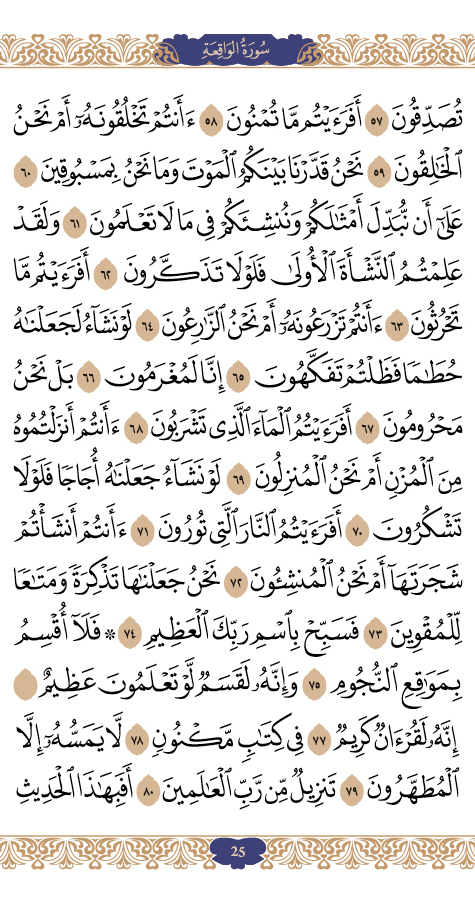 سُورَةُ الوَاقِعَةِ
تُصَدِّقُونَ ٥٧ أَفَرَءَيْتُم مَّا تُمْنُونَ ٥٨ ءَأَنتُمْ تَخْلُقُونَهُۥٓ أَمْ نَحْنُ
الْخَٰلِقُونَ ٥٩ نَحْنُ قَدَّرْنَا بَيْنَكُمُ الْمَوْتَ وَمَا نَحْنُ بِمَسْبُوقِينَ ٦٠
عَلَىٰٓ أَن نُّبَدِّلَ أَمْثَٰلَكُمْ وَنُنشِئَكُمْ فِى مَا لَا تَعْلَمُونَ ٦١ وَلَقَدْ
عَلِمْتُمُ النَّشْأَةَ الْأُولَىٰ فَلَوْلَا تَذَكَّرُونَ ٦٢ أَفَرَءَيْتُم مَّا
تَحْرُثُونَ ٦٣ ءَأَنتُمْ تَزْرَعُونَهُۥٓ أَمْ نَحْنُ الزَّٰرِعُونَ ٦٤ لَوْ نَشَآءُ لَجَعَلْنَٰهُ
حُطَٰمًا فَظَلْتُمْ تَفَكَّهُونَ ٦٥ إِنَّا لَمُغْرَمُونَ ٦٦ بَلْ نَحْنُ
مَحْرُومُونَ ٦٧ أَفَرَءَيْتُمُ الْمَآءَ الَّذِى تَشْرَبُونَ ٦٨ ءَأَنتُمْ أَنزَلْتُمُوهُ
مِنَ الْمُزْنِ أَمْ نَحْنُ الْمُنزِلُونَ ٦٩ لَوْ نَشَآءُ جَعَلْنَٰهُ أُجَاجًا فَلَوْلَا
تَشْكُرُونَ ٧٠ أَفَرَءَيْتُمُ النَّارَ الَّتِى تُورُونَ ٧١ ءَأَنتُمْ أَنشَأْتُمْ
شَجَرَتَهَآ أَمْ نَحْنُ الْمُنشِـُٔونَ ٧٢ نَحْنُ جَعَلْنَٰهَا تَذْكِرَةً وَمَتَٰعًا
لِّلْمُقْوِينَ ٧٣ فَسَبِّحْ بِاسْمِ رَبِّكَ الْعَظِيمِ ٧٤ ۞ فَلَآ أُقْسِمُ
بِمَوَٰقِعِ النُّجُومِ ٧٥ وَإِنَّهُۥ لَقَسَمٌ لَّوْ تَعْلَمُونَ عَظِيمٌ
إِنَّهُۥ لَقُرْءَانٌ كَرِيمٌ ٧٧ فِى كِتَٰبٍ مَّكْنُونٍ ٧٨ لَّا يَمَسُّهُۥٓ إِلَّا
الْمُطَهَّرُونَ ٧٩ تَنزِيلٌ مِّن رَّبِّ الْعَٰلَمِينَ ٨٠ أَفَبِهَٰذَا الْحَدِيثِ
25